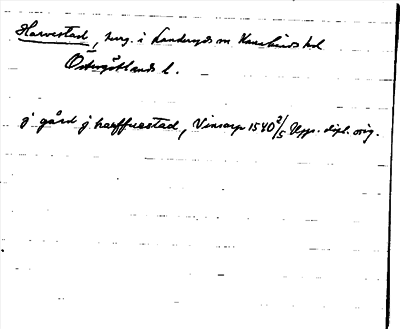 Harvestad, herg. i Landeryds sn Hanekinds hd
Östergötlands l.
j gård j harffuestad, Vinsarp 1540 2/5 Upps. dipl. orig.